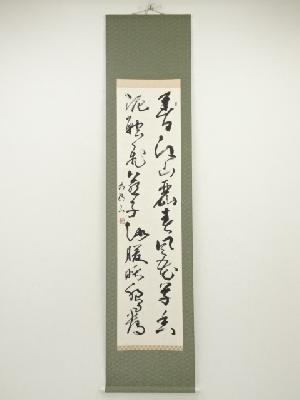 遲日江山麗春風花草香
泥融飛燕子沙暖睡鴛鴦